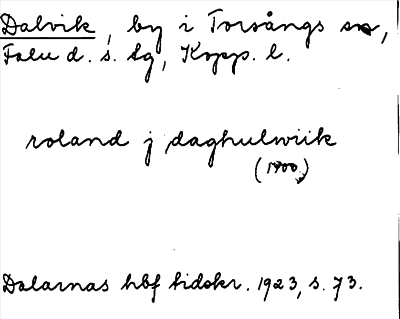 Dalvik, by i Torsångs sn,
Falu d. s. lg, Kopp. l.
roland j daghulwiik
(1400)
Dalarnas hbf tidskr. 1923, s. 73.